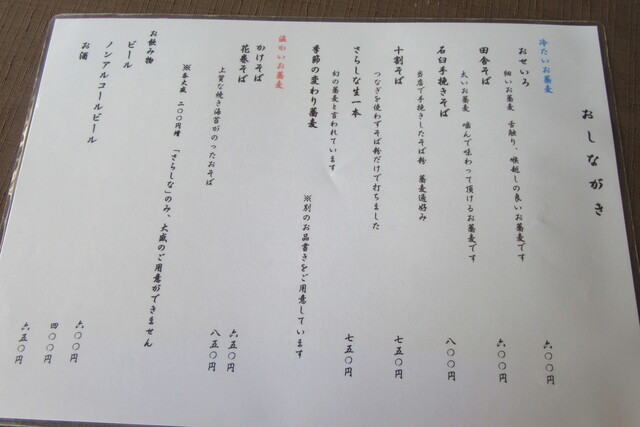 おしながき
冷たいお蕎麦
おせいろ 六〇〇円
細いお蕎麦 舌触り、喉越しの良いお蕎麦です
田舎そば 六〇〇円
太いお蕎麦 噛んで味わって頂けるお蕎麦です
石臼手挽きそば 八〇〇円
当店で手挽きしたそば粉 蕎麦通好み
十割そば 七五〇円
つなぎを使わずそば粉だけで打ちました
さらしな生一本 七五〇円
幻の蕎麦と言われています
季節の変わり蕎麦 ※別のお品書きをご用意しています
温かいお蕎麦
かけそば 六五〇円
花巻そば 八五〇円
上質な焼き海苔がのったおそば
※各大盛 二〇〇円増 「さらしな」のみ、大盛のご用意ができません
お飲み物
ビール 六〇〇円
ノンアルコールビール 四〇〇円
お酒 六五〇円